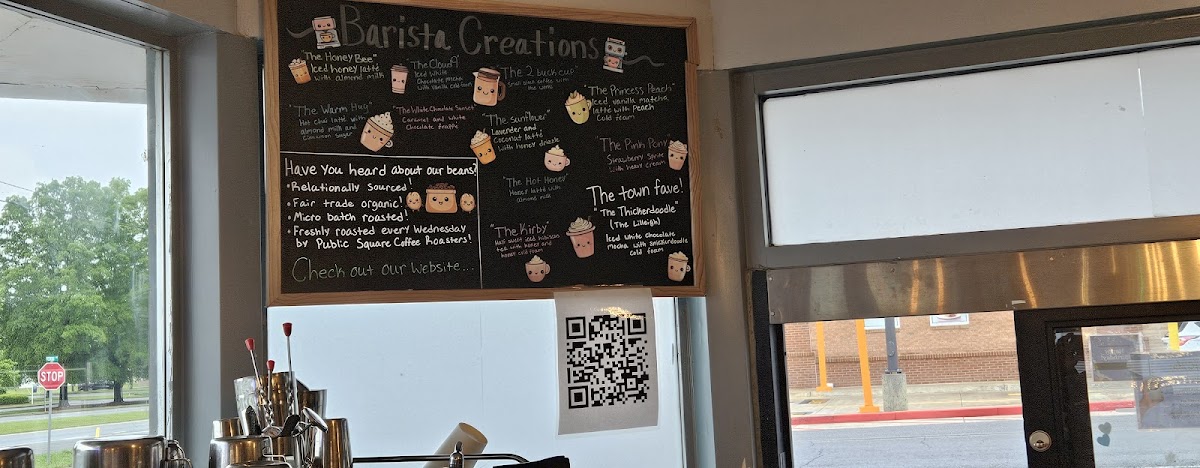 Barista Creations
"The Honey Bee"
Iced honey latte
with almond milk
"The Cloud 9"
Iced white
Chocolate mocha
with vanilla cold foam
"The 2 buck cup"
Small drip coffee with
the works
"The Princess Peach"
Iced vanilla matcha
latte with Peach
Cold foam
"The Warm Hug"
Hot chai latte with
almond milk and
Cinnamon sugar
"The White Chocolate Sunset"
Caramel and white
Chocolate frappe
"The Sunflower"
Lavender and
Coconut latte
with honey drizzle
"The Pink Pony"
Strawberry Sprite
with heavy cream
"The Hot Honey"
Honey latte with
almond milk
Have you heard about our beans?
• Relationally Sourced!
• Fair trade organic!
• Micro batch roasted!
• Freshly roasted every Wednesday
by Public Square Coffee Roasters!
Check out our website...
"The Kirby"
Half sweet iced hibiscus
tea with honey and
honey cold foam
The town fave!
"The Thickerdoodle"
(The Lilleigh)
Iced white chocolate
mocha with snickerdoodle
cold foam
STOP